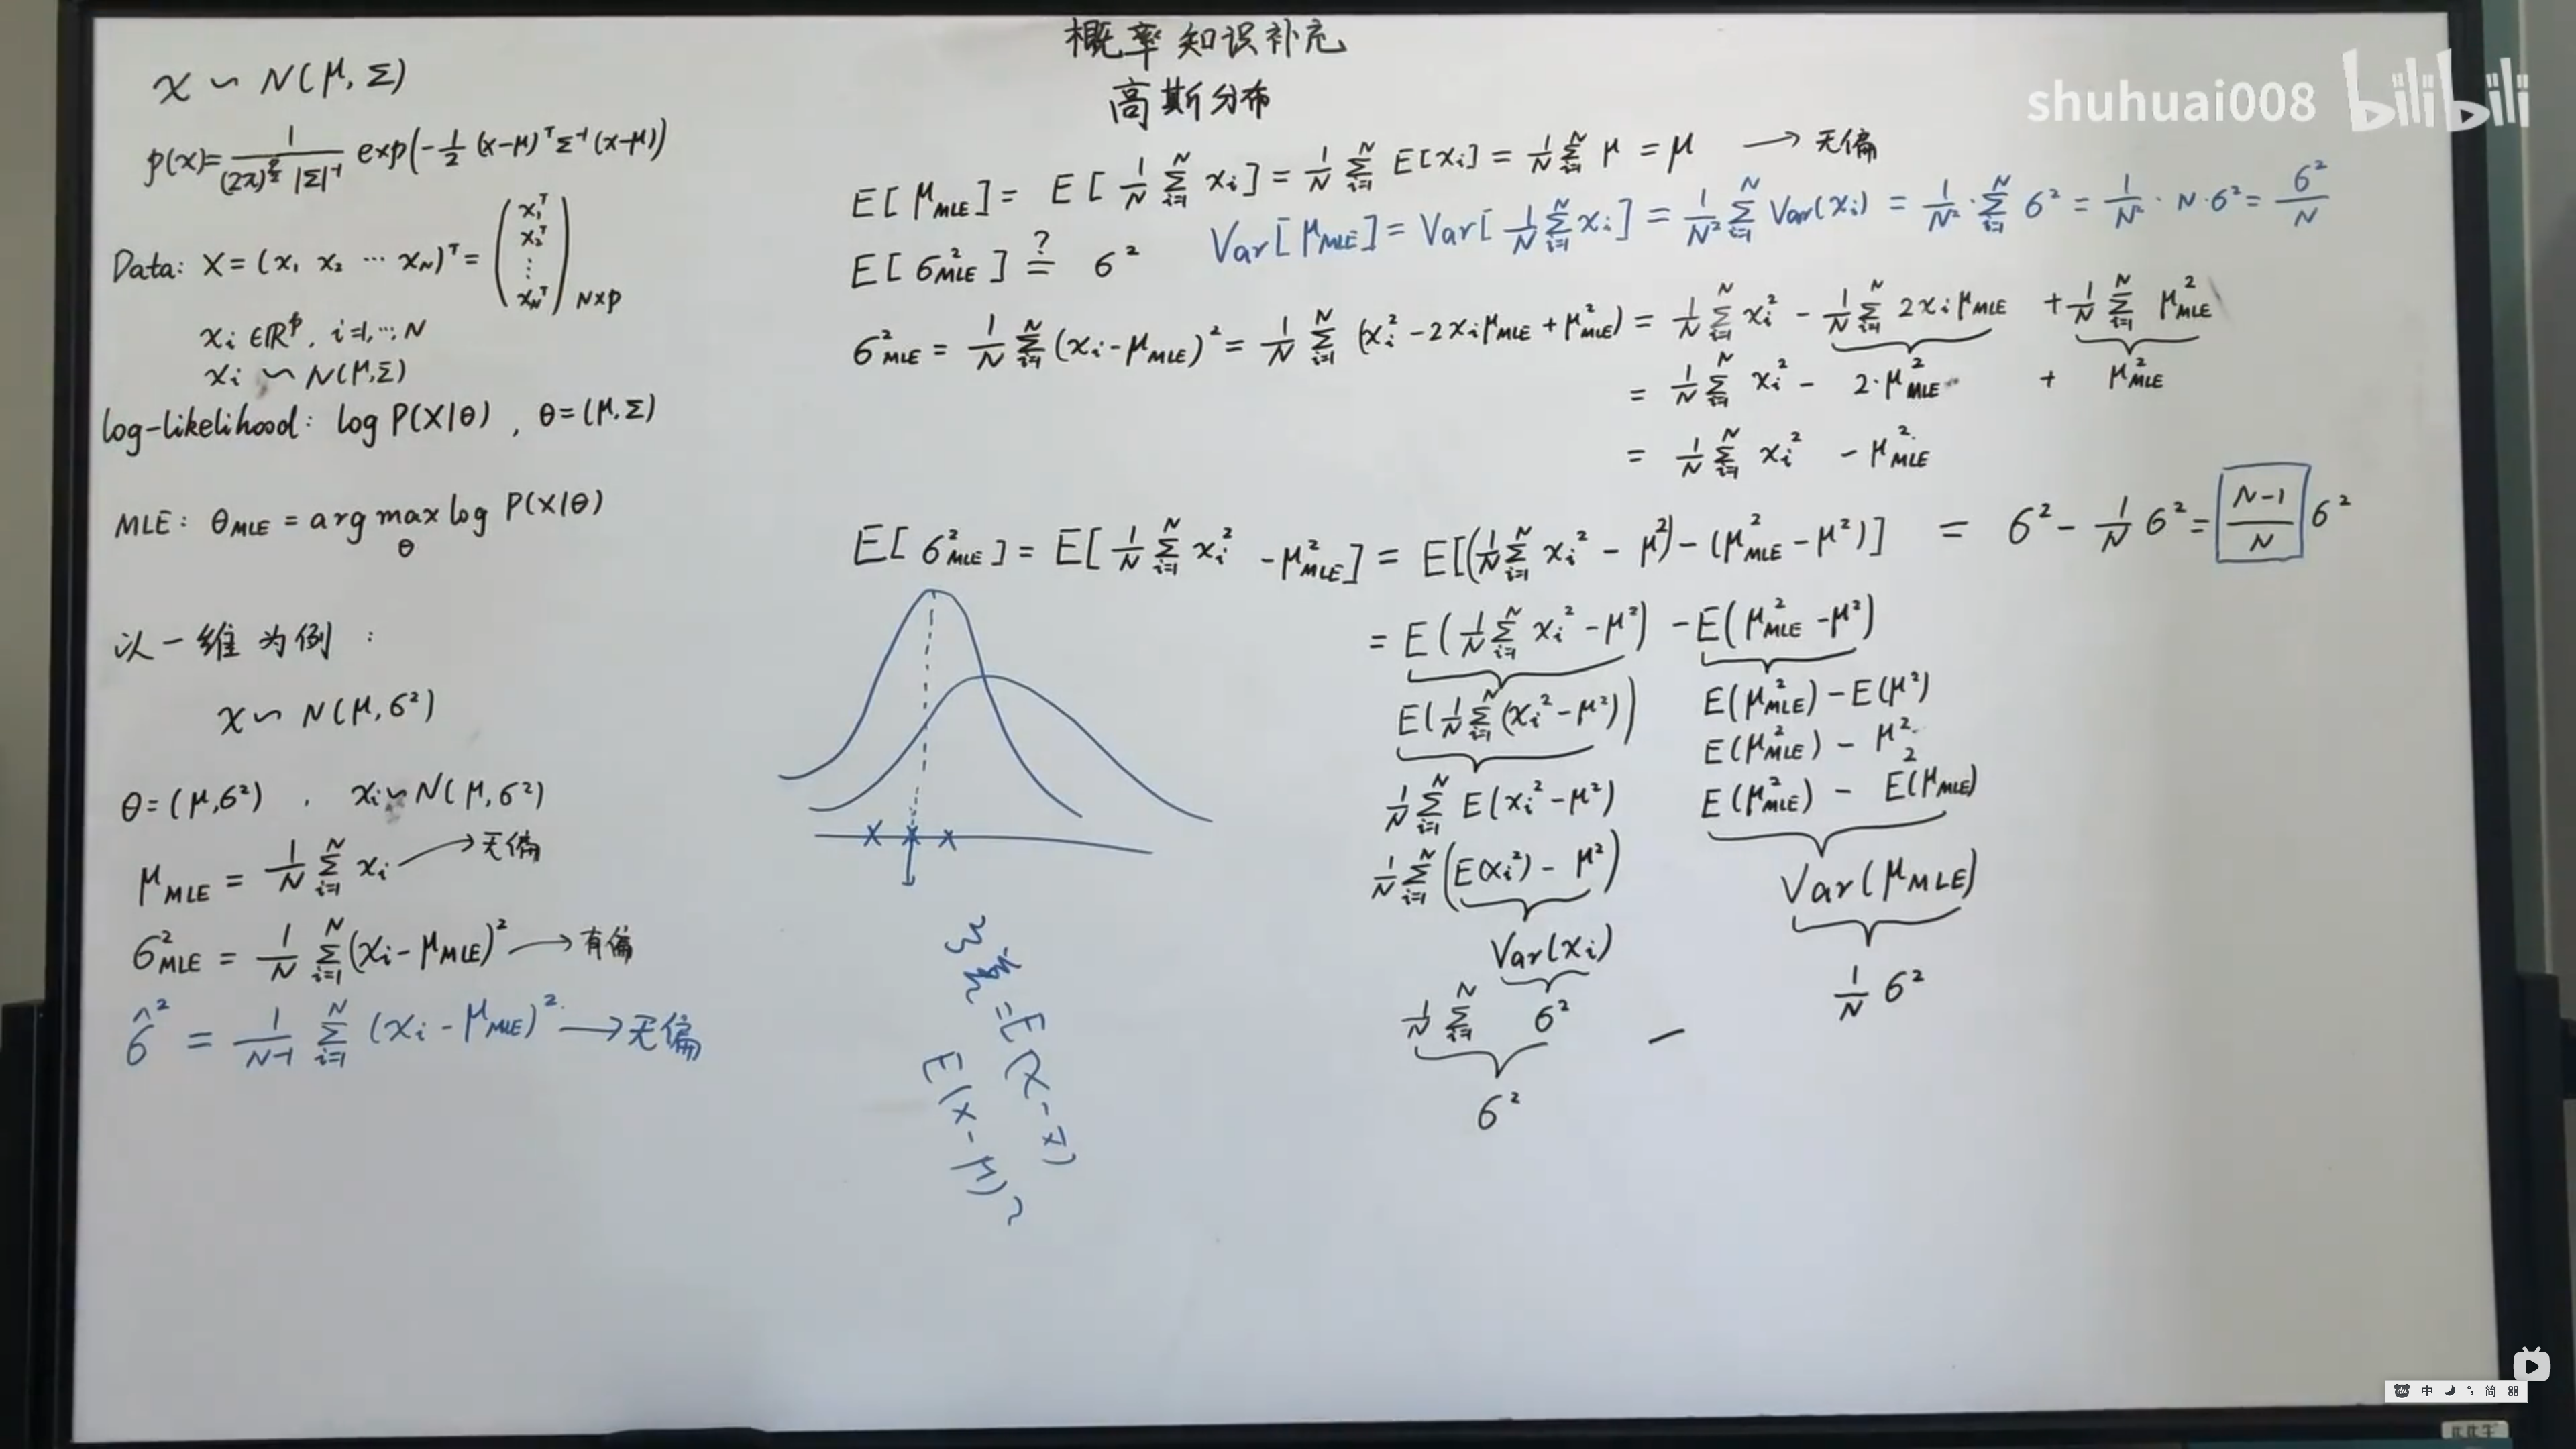 概率知识补充
高斯分布
shuhuai008 bilibili
x ~ N(μ, Σ)
p(x)= 1/((2π)^{p/2} |Σ|^{-1}) exp(-1/2 (x-μ)^T Σ^{-1} (x-μ))
Data: X = (x₁ x₂ ⋯ x_N)^T = (x₁^T x₂^T ⋮ x_N^T)_{N×p}
x_i ∈ ℝ^p, i=1,⋯,N
x_i ~ N(μ,Σ)
log-likelihood: log P(X|θ), θ=(μ,Σ)
MLE: θ_MLE = arg max_θ log P(X|θ)
以一维为例:
x ~ N(μ,σ²)
θ=(μ,σ²), x_i ~ N(μ,σ²)
μ_MLE = 1/N Σ_{i=1}^N x_i → 无偏
σ²_MLE = 1/N Σ_{i=1}^N (x_i - μ_MLE)² → 有偏
σ̂² = 1/(N-1) Σ_{i=1}^N (x_i - μ_MLE)² → 无偏
E[μ_MLE] = E[1/N Σ_{i=1}^N x_i] = 1/N Σ_{i=1}^N E[x_i] = 1/N Σ_{i=1}^N μ = μ → 无偏
Var[μ_MLE] = Var[1/N Σ_{i=1}^N x_i] = 1/N² Σ_{i=1}^N Var(x_i) = 1/N² · Σ_{i=1}^N σ² = 1/N² · N·σ² = σ²/N
E[σ²_MLE] =? σ²
σ²_MLE = 1/N Σ_{i=1}^N (x_i - μ_MLE)² = 1/N Σ_{i=1}^N (x_i² - 2x_iμ_MLE + μ²_MLE) = 1/N Σ_{i=1}^N x_i² - 1/N Σ_{i=1}^N 2x_iμ_MLE + 1/N Σ_{i=1}^N μ²_MLE
= 1/N Σ_{i=1}^N x_i² - 2·μ²_MLE + μ²_MLE
= 1/N Σ_{i=1}^N x_i² - μ²_MLE
E[σ²_MLE] = E[1/N Σ_{i=1}^N x_i² - μ²_MLE] = E[(1/N Σ_{i=1}^N x_i² - μ²) - (μ²_MLE - μ²)] = σ² - 1/N σ² = (N-1)/N σ²
= E(1/N Σ_{i=1}^N x_i² - μ²) - E(μ²_MLE - μ²)
E(1/N Σ_{i=1}^N (x_i² - μ²))
1/N Σ_{i=1}^N E(x_i² - μ²)
1/N Σ_{i=1}^N (E(x_i²) - μ²)
Var(x_i)
1/N Σ_{i=1}^N σ²
σ²
E(μ²_MLE) - E(μ²)
E(μ²_MLE) - μ²
E(μ²_MLE) - E²(μ_MLE)
Var(μ_MLE)
1/N σ²
-
= E(x - x̄)
E(x - μ)²
中 简